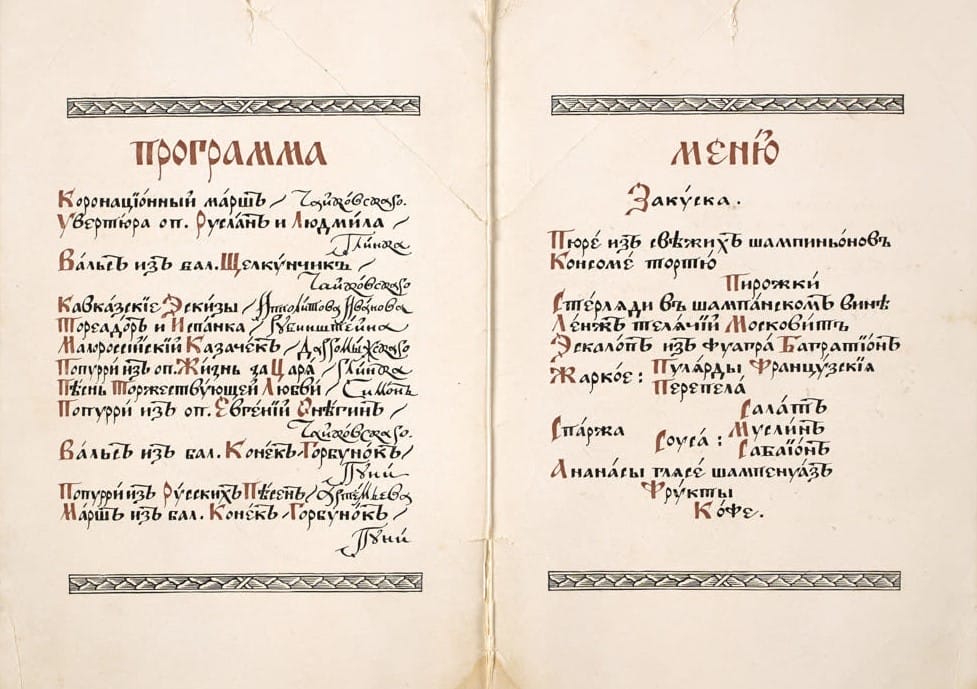 Программа
Коронаціо́нный ма́ршъ / Чайко́вскаго.
Увертю́ра оп. Русла́нъ и Людми́ла /
Гли́нка
Ва́льсъ изъ бал. Щелку́нчикъ /
Чайко́вскаго
Кавка́зскіе Эски́зы / Ипполи́това Ива́нова
Тореадо́ръ и Испа́нка / Рубинште́йна
Малоросси́йскій Казаче́къ / Даргомы́жскаго
Попурри́ изъ оп. Жизнь за Царя́ / Гли́нка
Пѣснь Торжеству́ющей Любви́ / Симо́нъ
Попурри́ изъ оп. Евге́ній Онѣ́гинъ /
Чайко́вскаго.
Ва́льсъ изъ бал. Коне́къ-Горбуно́къ /
Пуни́
Попурри́ изъ Ру́сскихъ Пѣ́сенъ / Арте́мьева
Ма́ршъ изъ бал. Коне́къ-Горбуно́къ /
Пуни́
Меню̀
Заку́ска.
Пюре́ изъ свѣ́жихъ шампиньо́новъ
Консоме́ тортю́
Пирожки́
Сте́рляди въ шампа́нскомъ винѣ
Ле́нжъ теля́чій Московитъ
Эскало́пъ изъ фуагра́ Багратіо́нъ
Жарко́е: Пуля́рды Францу́зскія
Перепела́
Сала́тъ
Спа́ржа Со́уса: Мусли́нъ
Сабаіо́нъ
Анана́сы глясе́ шампенуа́зъ
Фру́кты
Ко́фе.